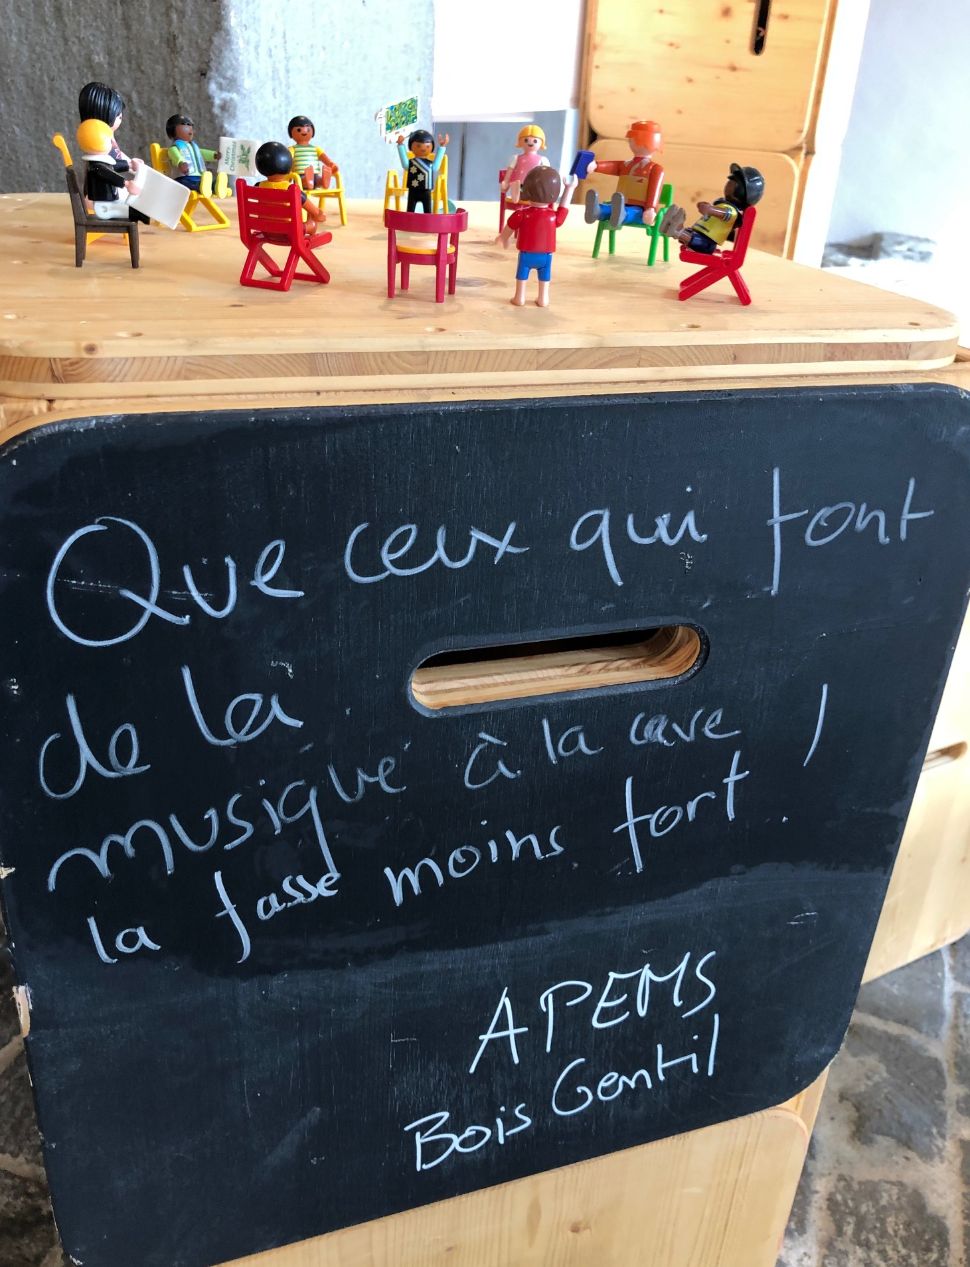 Merry
Christmas
Que ceux qui font
de la
musique à la cave !
la fasse moins fort.
APEMS
Bois Gentil